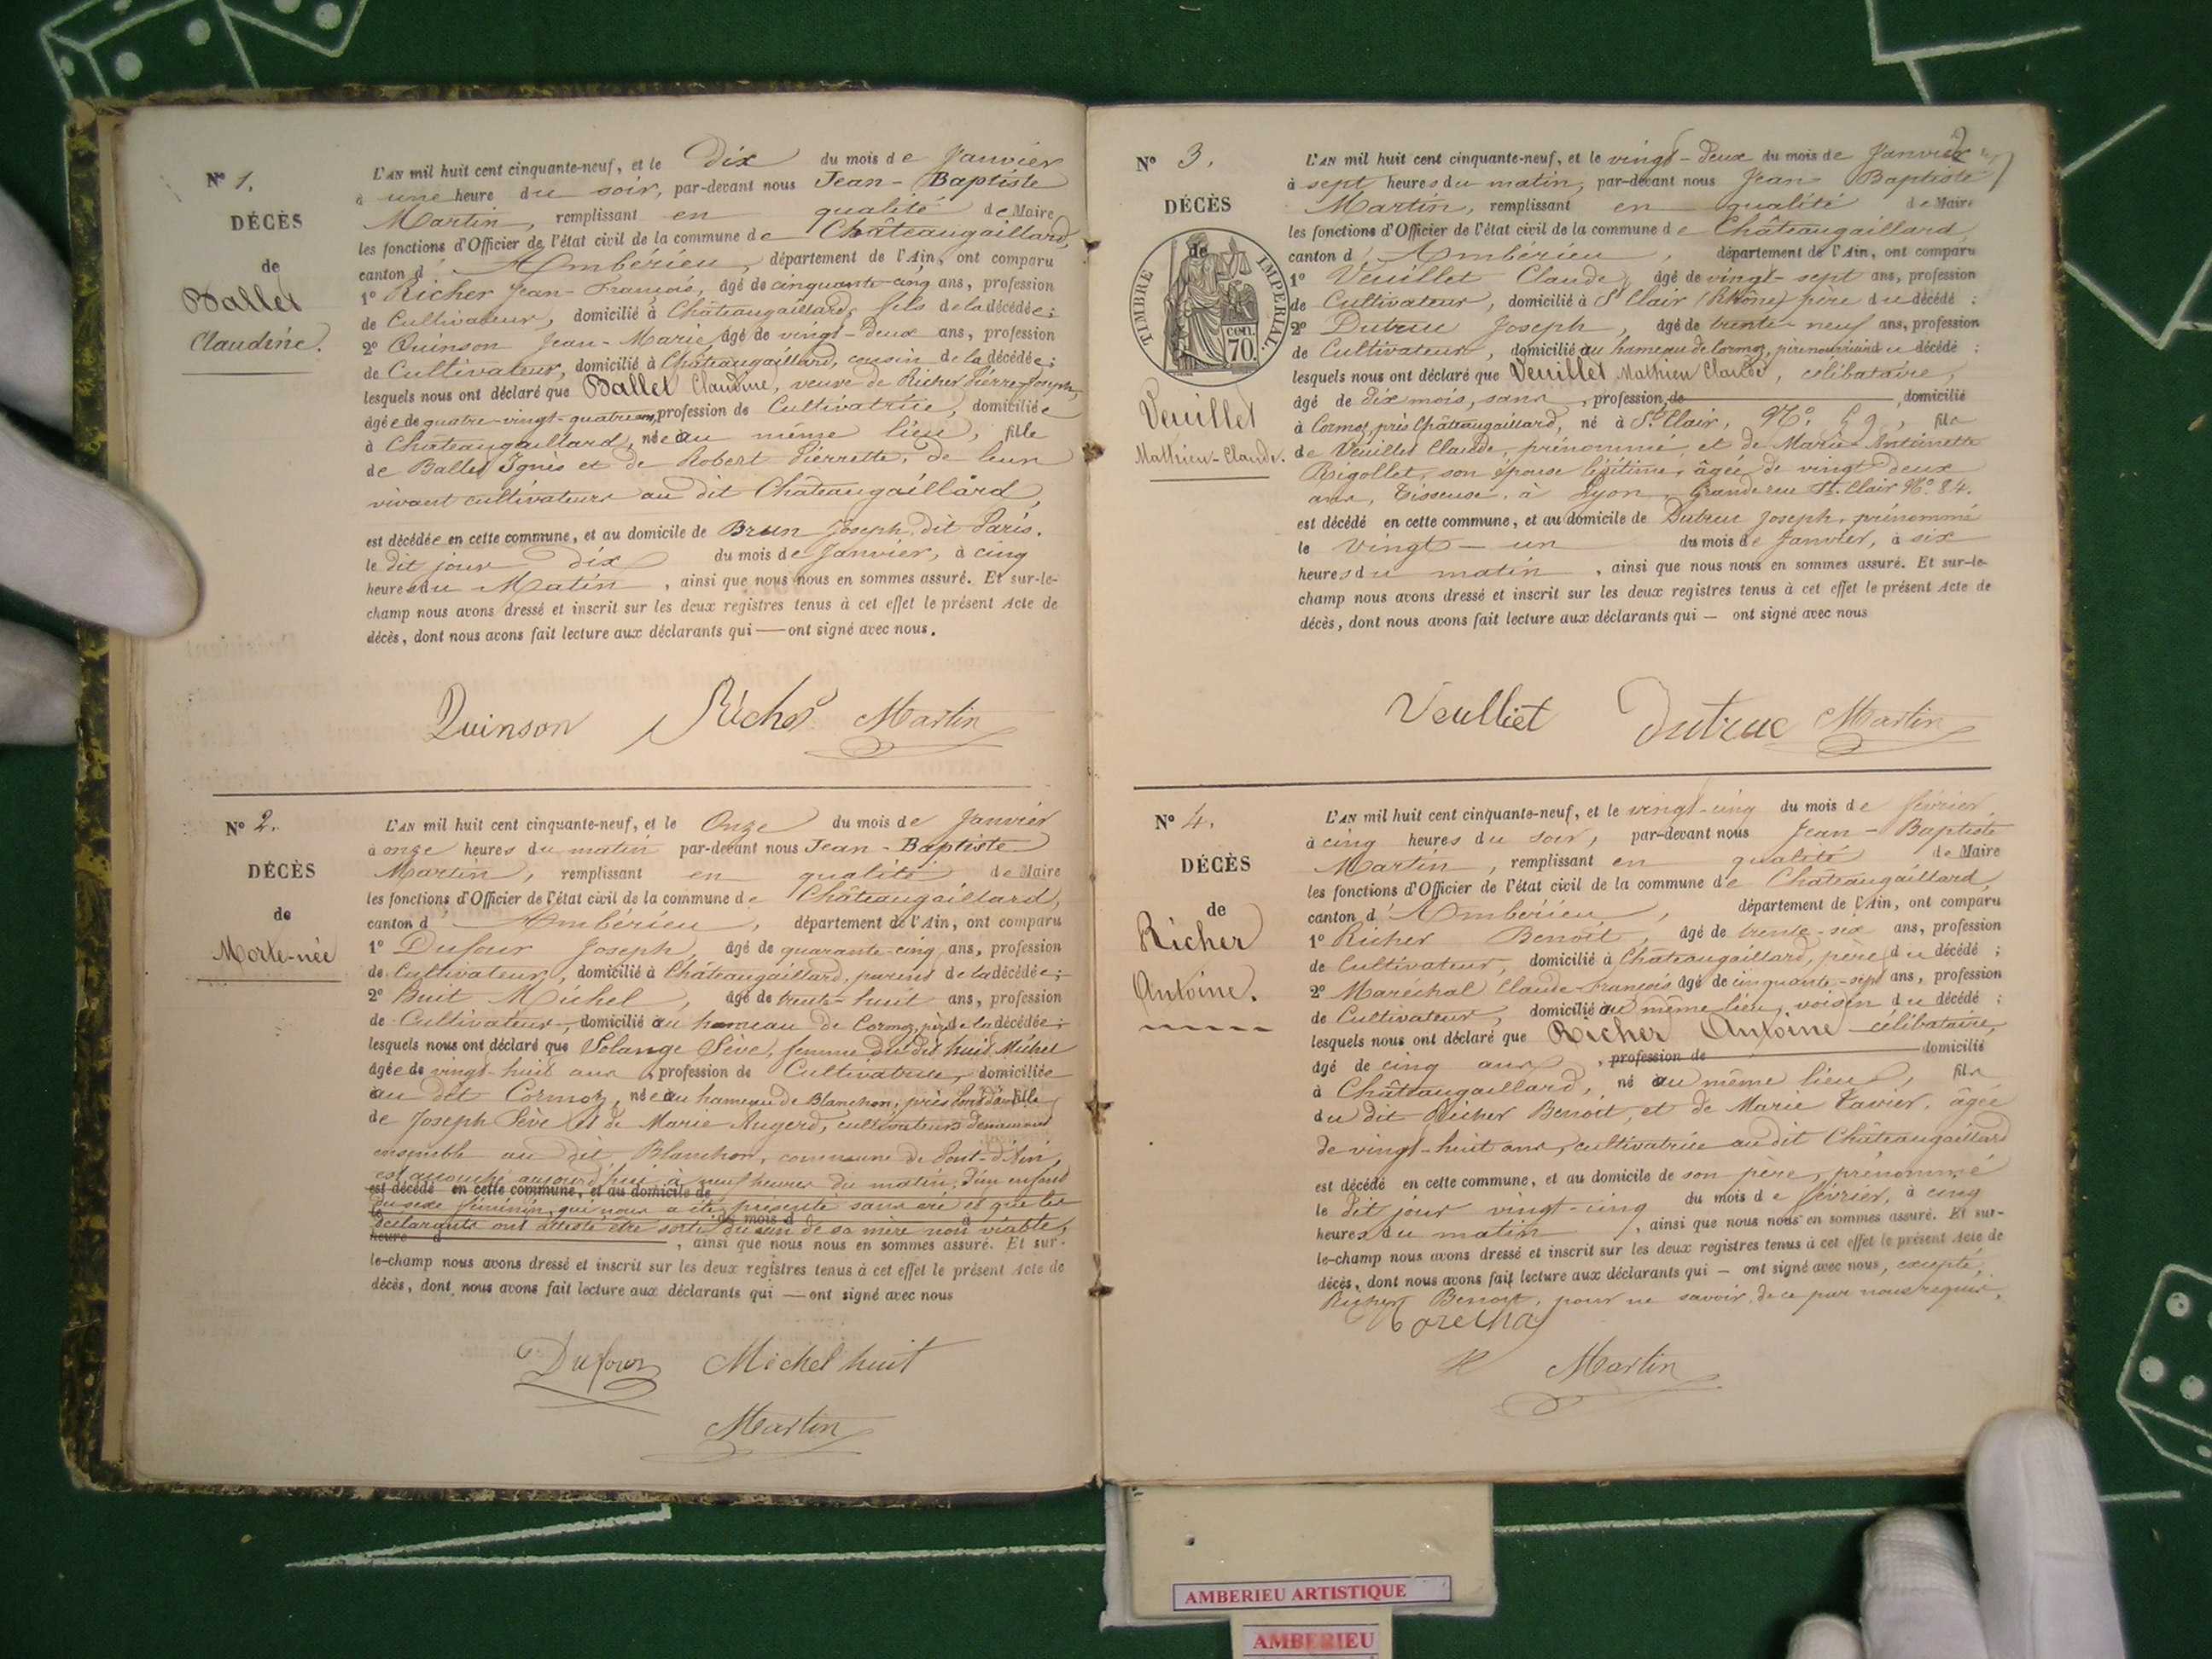 N° 1.
DÉCÈS
de
Ballet
Claudine.
L'AN mil huit cent cinquante-neuf, et le dix du mois de Janvier
à une heure du soir, par-devant nous Jean-Baptiste
Martin, remplissant en qualité de Maire
les fonctions d'Officier de l'état civil de la commune de Châteaugaillard,
canton d'Ambérieu, département de l'Ain, ont comparu
1° Richer Jean-François, âgé de cinquante-cinq ans, profession
de Cultivateur, domicilié à Châteaugaillard, fils de la décédée;
2° Quinson Jean-Marie, âgé de vingt-deux ans, profession
de Cultivateur, domicilié à Châteaugaillard, cousin de la décédée;
lesquels nous ont déclaré que Ballet Claudine, veuve de Richer Pierre Joseph,
âgée de quatre-vingt-quatre ans, profession de Cultivatrice, domiciliée
à Châteaugaillard, née au même lieu, fille
de Ballet Ignès et de Robert Pierrette, de leur
vivant cultivateurs au dit Châteaugaillard,
est décédée en cette commune, et au domicile de Brun Joseph, dit Paris.
le dit jour dix du mois de Janvier, à cinq
heures du Matin, ainsi que nous nous en sommes assuré. Et sur-le-
champ nous avons dressé et inscrit sur les deux registres tenus à cet effet le présent Acte de
décès, dont nous avons fait lecture aux déclarants qui — ont signé avec nous.
Quinson Richer Martin
N° 2.
DÉCÈS
de
Morte-née
L'AN mil huit cent cinquante-neuf, et le Onze du mois de Janvier
à onze heures du matin par-devant nous Jean-Baptiste
Martin, remplissant en qualité de Maire
les fonctions d'Officier de l'état civil de la commune de Châteaugaillard,
canton d'Ambérieu, département de l'Ain, ont comparu
1° Dufour Joseph, âgé de quarante-cinq ans, profession
de Cultivateur, domicilié à Châteaugaillard, parent de la décédée;
2° Buit Michel, âgé de trente-huit ans, profession
de Cultivateur, domicilié au hameau de Cormoz, père de la décédée;
lesquels nous ont déclaré que Solange Sève, femme du dit huit Michel
âgée de vingt-huit ans, profession de Cultivatrice, domiciliée
au dit Cormoz, née au hameau de Blanchon, près Pont-d'Ain fille
de Joseph Sève et de Marie Augerd, cultivateurs demeurant
ensemble au dit Blanchon, commune de Pont-d'Ain,
est accouché aujourd'hui à neuf heures du matin, d'un enfant
est décédé en cette commune, et au domicile de
du sexe féminin, qui nous a été présenté sans vie et que les
le du mois d à
déclarants ont attesté être sorti du sein de sa mère non viable,
heure d , ainsi que nous nous en sommes assuré. Et sur-
le-champ nous avons dressé et inscrit sur les deux registres tenus à cet effet le présent Acte de
décès, dont nous avons fait lecture aux déclarants qui — ont signé avec nous
Dufour Michel huit
Martin
2
N° 3.
DÉCÈS
de
TIMBRE IMPERIAL.
cen.
70.
Veuillet
Mathieu-Claude.
L'AN mil huit cent cinquante-neuf, et le vingt-deux du mois de Janvier
à sept heures du matin, par-devant nous Jean Baptiste
Martin, remplissant en qualité de Maire
les fonctions d'Officier de l'état civil de la commune de Châteaugaillard
canton d'Ambérieu, département de l'Ain, ont comparu
1° Veuillet Claude, âgé de vingt-sept ans, profession
de Cultivateur, domicilié à St Clair (Rhône) père du décédé;
2° Dutruc Joseph, âgé de trente-neuf ans, profession
de Cultivateur, domicilié au hameau de Cormoz, père nourricier du décédé;
lesquels nous ont déclaré que Veuillet Mathieu Claude, célibataire,
âgé de dix mois, sans, profession de , domicilié
à Cormoz, près Châteaugaillard, né à St Clair, N° 59, fils
de Veuillet Claude, prénommé, et de Marie Antoinette
Rigollet, son épouse légitime, âgée de vingt deux
ans, Tisseuse, à Lyon, Grande rue St. Clair N° 84.
est décédé en cette commune, et au domicile de Dutruc Joseph, prénommé
le vingt-un du mois de Janvier, à six
heures du matin, ainsi que nous nous en sommes assuré. Et sur-le-
champ nous avons dressé et inscrit sur les deux registres tenus à cet effet le présent Acte de
décès, dont nous avons fait lecture aux déclarants qui — ont signé avec nous
Veulliet Dutruc Martin
N° 4.
DÉCÈS
de
Richer
Antoine.
L'AN mil huit cent cinquante-neuf, et le vingt-cinq du mois de février
à cinq heures du soir, par-devant nous Jean-Baptiste
Martin, remplissant en qualité de Maire
les fonctions d'Officier de l'état civil de la commune de Châteaugaillard,
canton d'Ambérieu, département de l'Ain, ont comparu
1° Richer Benoît, âgé de trente-six ans, profession
de Cultivateur, domicilié à Châteaugaillard, père du décédé;
2° Maréchal Claude-François âgé de cinquante-sept ans, profession
de Cultivateur, domicilié au même lieu, voisin du décédé;
lesquels nous ont déclaré que Richer Antoine célibataire,
âgé de cinq ans, profession de domicilié
à Châteaugaillard, né au même lieu, fils
du dit Richer Benoît, et de Marie Tavier, âgée
de vingt-huit ans, cultivatrice au dit Châteaugaillard
est décédé en cette commune, et au domicile de son père, prénommé
le dit jour vingt-cinq du mois de février, à cinq
heures du matin, ainsi que nous nous en sommes assuré. Et sur-
le-champ nous avons dressé et inscrit sur les deux registres tenus à cet effet le présent Acte de
décès, dont nous avons fait lecture aux déclarants qui — ont signé avec nous, excepté,
Richer Benoît, pour ne savoir, de ce par nous requis.
Morechal
Martin
AMBERIEU ARTISTIQUE
AMBERIEU